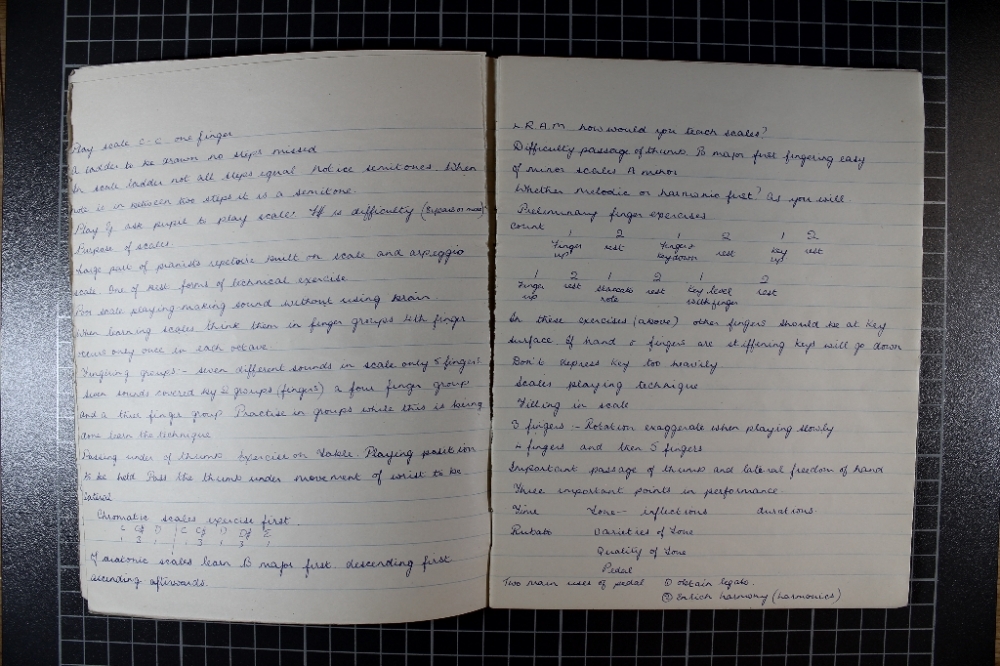 Play scale C-C one finger
A ladder to be drawn no steps missed
In scale ladder not all steps equal Notice semitones When
note is in between two steps it is a semitone.
Play G ask pupil to play scale. F# is difficulty
Purpose of scales.
Large part of pianists repetoire built on scale and arpeggio
scale. One of best forms of technical exercise
scale playing making sound without using brain.
When learning scales think them in finger groups 4th finger
occurs only once in each octave
Fingering groups:- seven different sounds in scale only 5 fingers
seven sounds covered by 2 groups (fingers) a four finger group
and a three finger group Practise in groups while this is being
done learn the technique
Passing under of thumb Exercise on table. Playing position
to be held Pass the thumb under movement of wrist to be
lateral
Chromatic scales exercise first.
C C# D C C# D D# E
1 3 1 1 3 1 3 1
If diatonic scales learn B major first descending first
ascending afterwards.
L.R.A.M how would you teach scales?
Difficulty passage of thumb B major first fingering easy
of minor scales A minor
Whether melodic or harmonic first? As you will.
Preliminary finger exercises
Count 1 2 1 2 1 2
Finger up rest Finger keydown rest key up rest
1 2 1 2 1 2
Finger up rest staccato note rest key level with finger rest
In these exercises (above) other fingers should be at key
surface If hand & fingers are stiffening keys will go down
Don't depress key too heavily
Scales playing technique
Filling in scale
3 fingers :- Rotation exaggerate when playing slowly
4 fingers and then 5 fingers
Important passage of thumb and lateral freedom of hand
Three important points in performance
Time Tone:- inflections durations.
Rubato Varieties of Tone
Quality of Tone
Pedal
Two main uses of pedal ① obtain legato.
② Enrich harmony (harmonics)